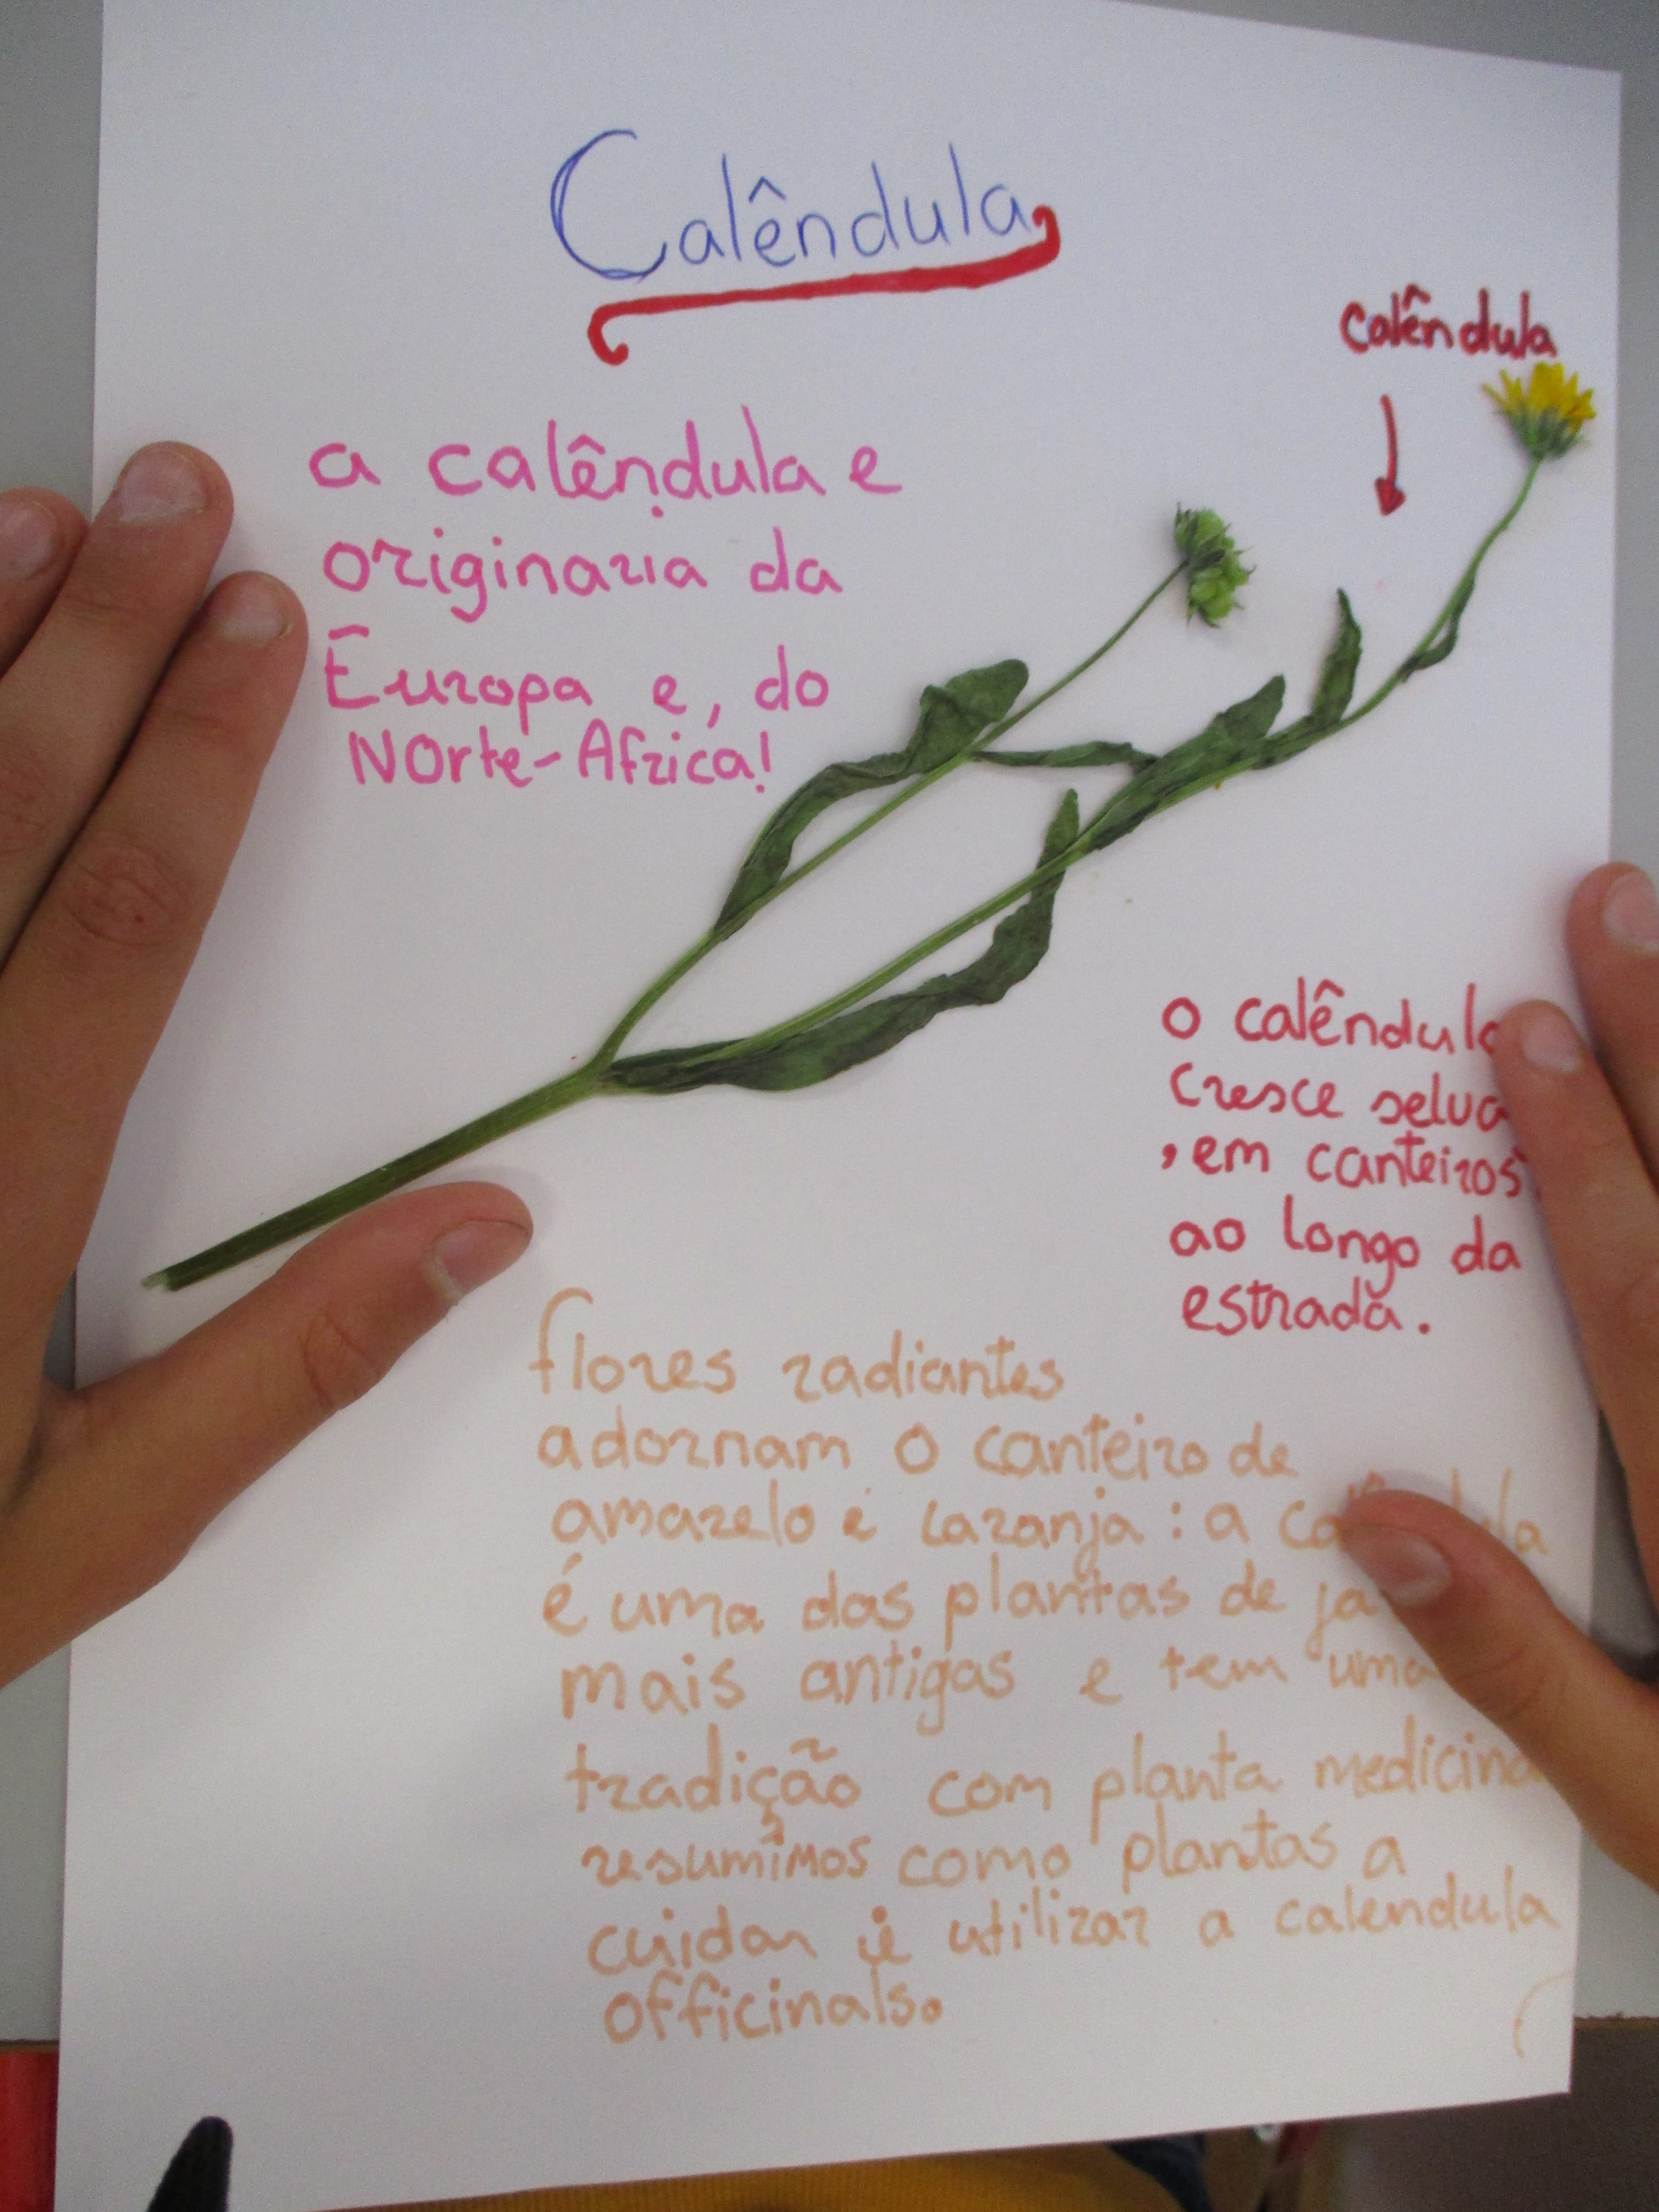 Calêndula
calêndula
a calêndula e
originaria da
Europa e, do
Norte-Africa!
o calêndula
cresce selva
, em canteiros
ao longo da
estrada.
flores radiantes
adornam o canteiro de
amarelo e laranja: a
é uma das plantas de
mais antigas e tem uma
tradição com planta medicina
resumimos como plantas a
cuidar e utilizar a calendula
officinals.